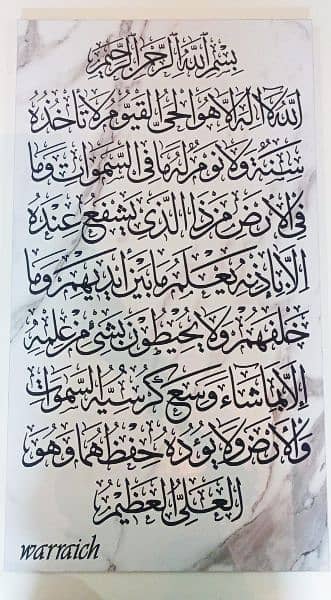 بِسْمِ ٱللَّهِ ٱلرَّحْمَٰنِ ٱلرَّحِيمِ
اللَّهُ لَا إِلَٰهَ إِلَّا هُوَ الْحَيُّ الْقَيُّومُ لَا تَأْخُذُهُ
سِنَةٌ وَلَا نَوْمٌ لَهُ مَا فِي السَّمَوَاتِ وَمَا
فِي الْأَرْضِ مَنْ ذَا الَّذِي يَشْفَعُ عِنْدَهُ
إِلَّا بِإِذْنِهِ يَعْلَمُ مَا بَيْنَ أَيْدِيهِمْ وَمَا
خَلْفَهُمْ وَلَا يُحِيطُونَ بِشَيْءٍ مِنْ عِلْمِهِ
إِلَّا بِمَا شَاءَ وَسِعَ كُرْسِيُّهُ السَّمَوَاتِ
وَالْأَرْضَ وَلَا يَؤُدُهُ حِفْظُهُمَا وَهُوَ
الْعَلِيُّ الْعَظِيمُ
warraich